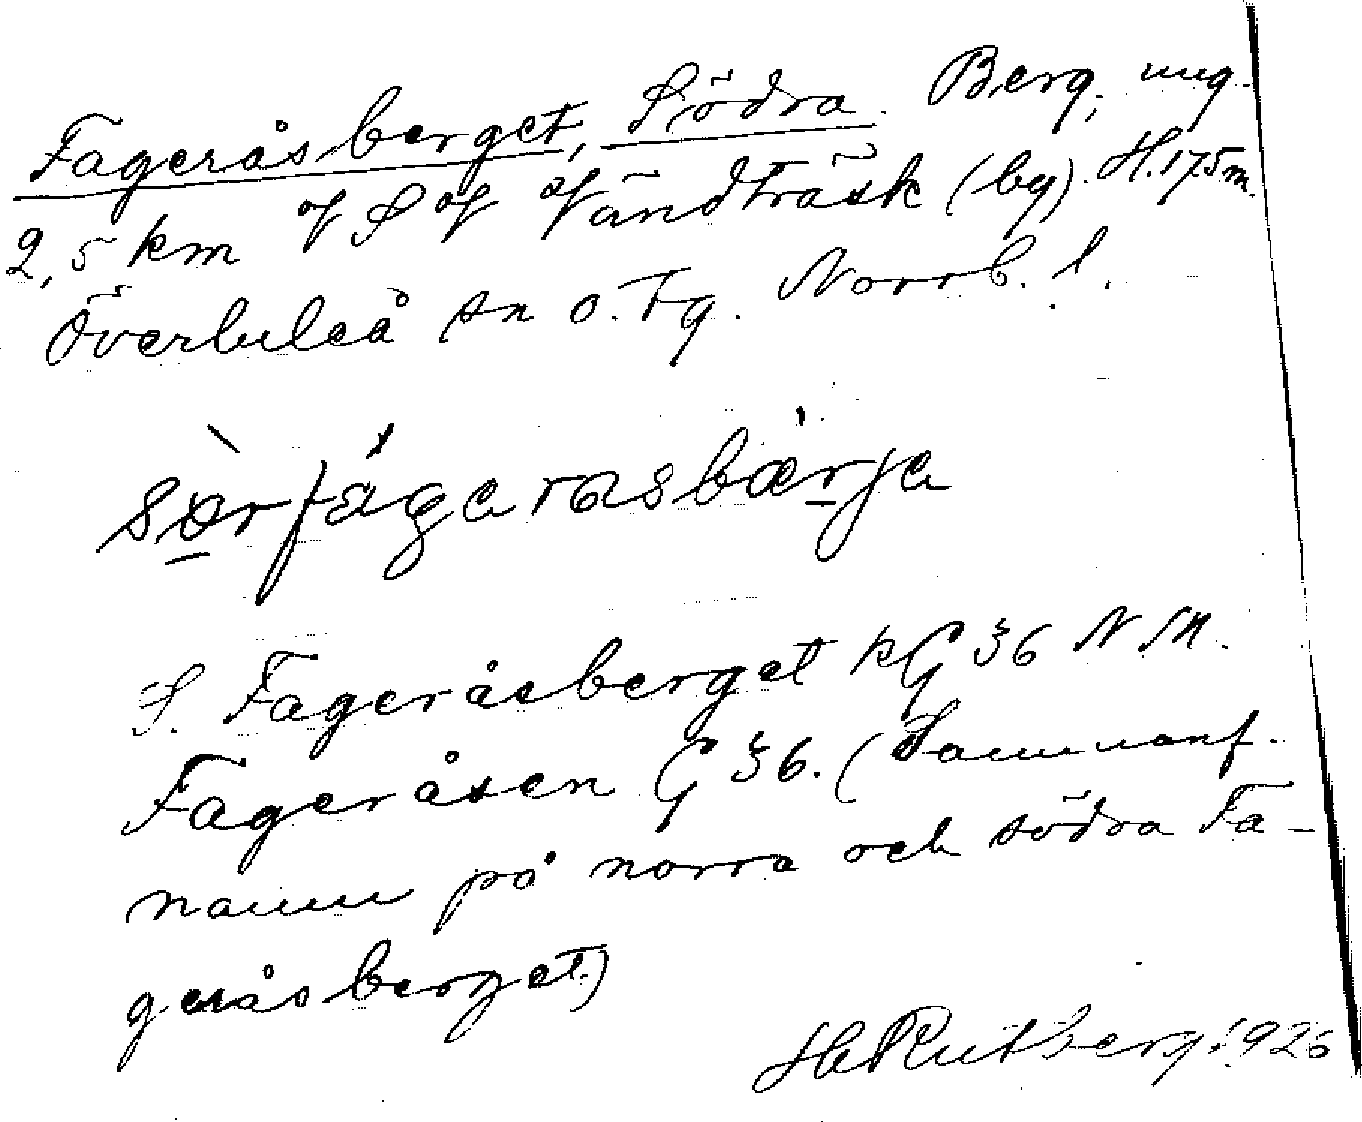 Fageråsberget, Södra. Berg, ung.
2,5 km V S V Vändträsk (by). H. 175 m.
Överluleå sn o. tg. Norrb. l.
S. Fageråsberget kG 36 N M.
Fageråsen G 36. (Sammanf.
namn på norra och södra Fa-
geråsberget.)
H Rutberg 1926